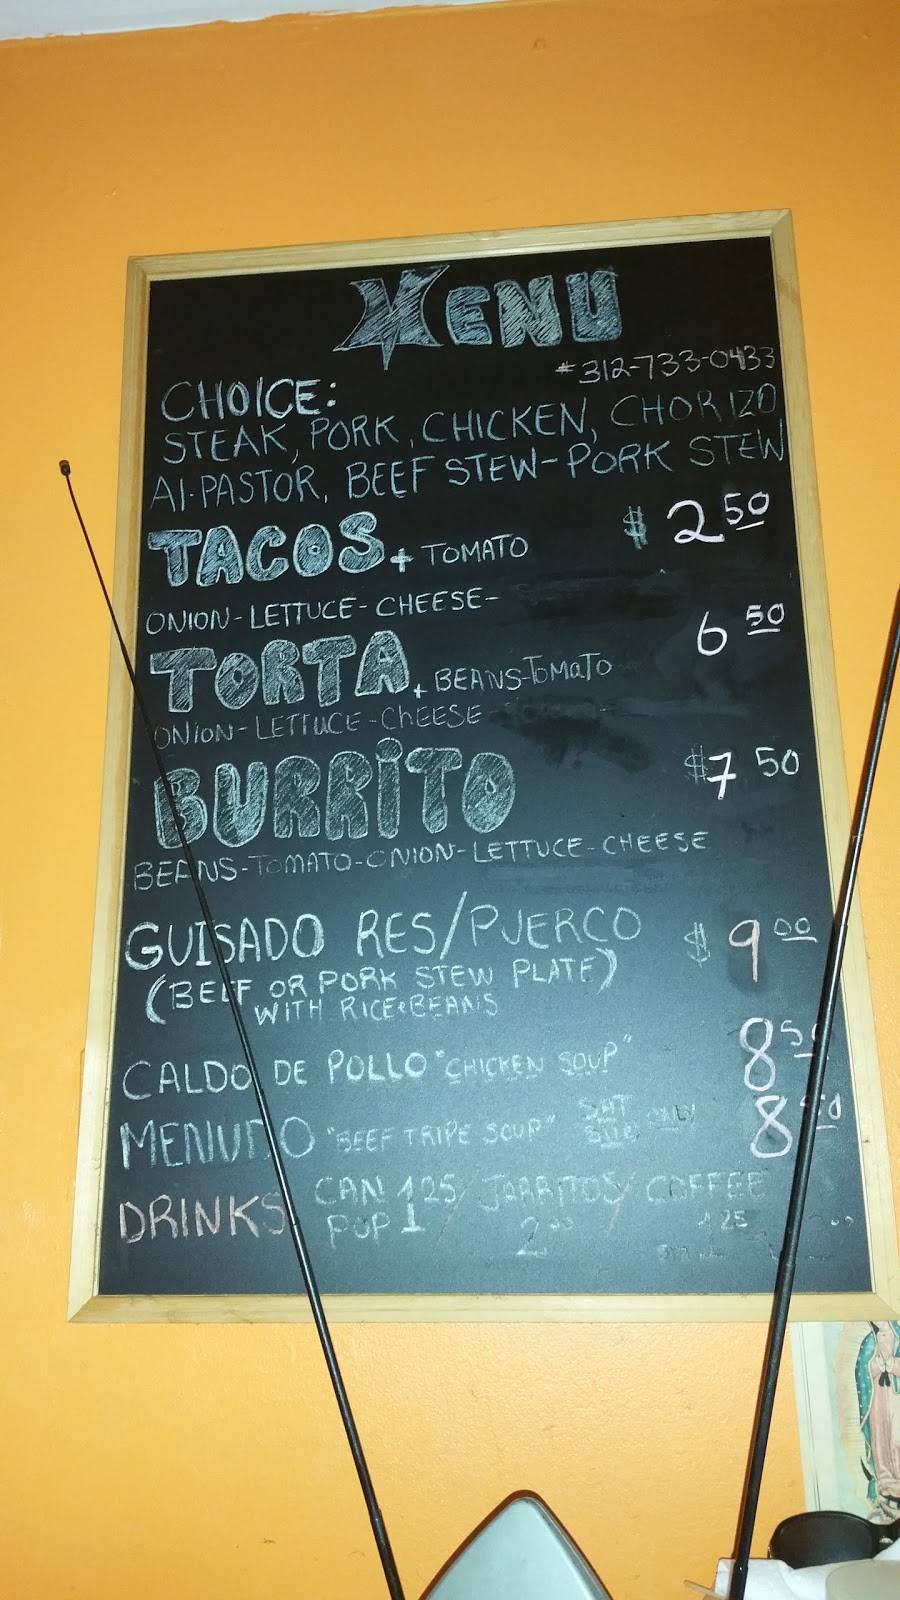 MENU
# 312-733-0433
CHOICE:
STEAK, PORK, CHICKEN, CHORIZO
Al-PASTOR, BEEF STEW-PORK STEW
TACOS + TOMATO $ 2 50
ONION-LETTUCE-CHEESE-
TORTA + BEANS-TOMATO 6 50
ONION-LETTUCE-CHEESE
BURRITO $7 50
BEANS-TOMATO-ONION-LETTUCE-CHEESE
GUISADO RES/PUERCO $ 9 00
(BEEF OR PORK STEW PLATE)
WITH RICE & BEANS
CALDO DE POLLO "CHICKEN SOUP" 8 50
MENUDO "BEEF TRIPE SOUP" ONLY 8 50
DRINKS CAN POP 1 25 / JARRITOS 2 00 / COFFEE 1 25